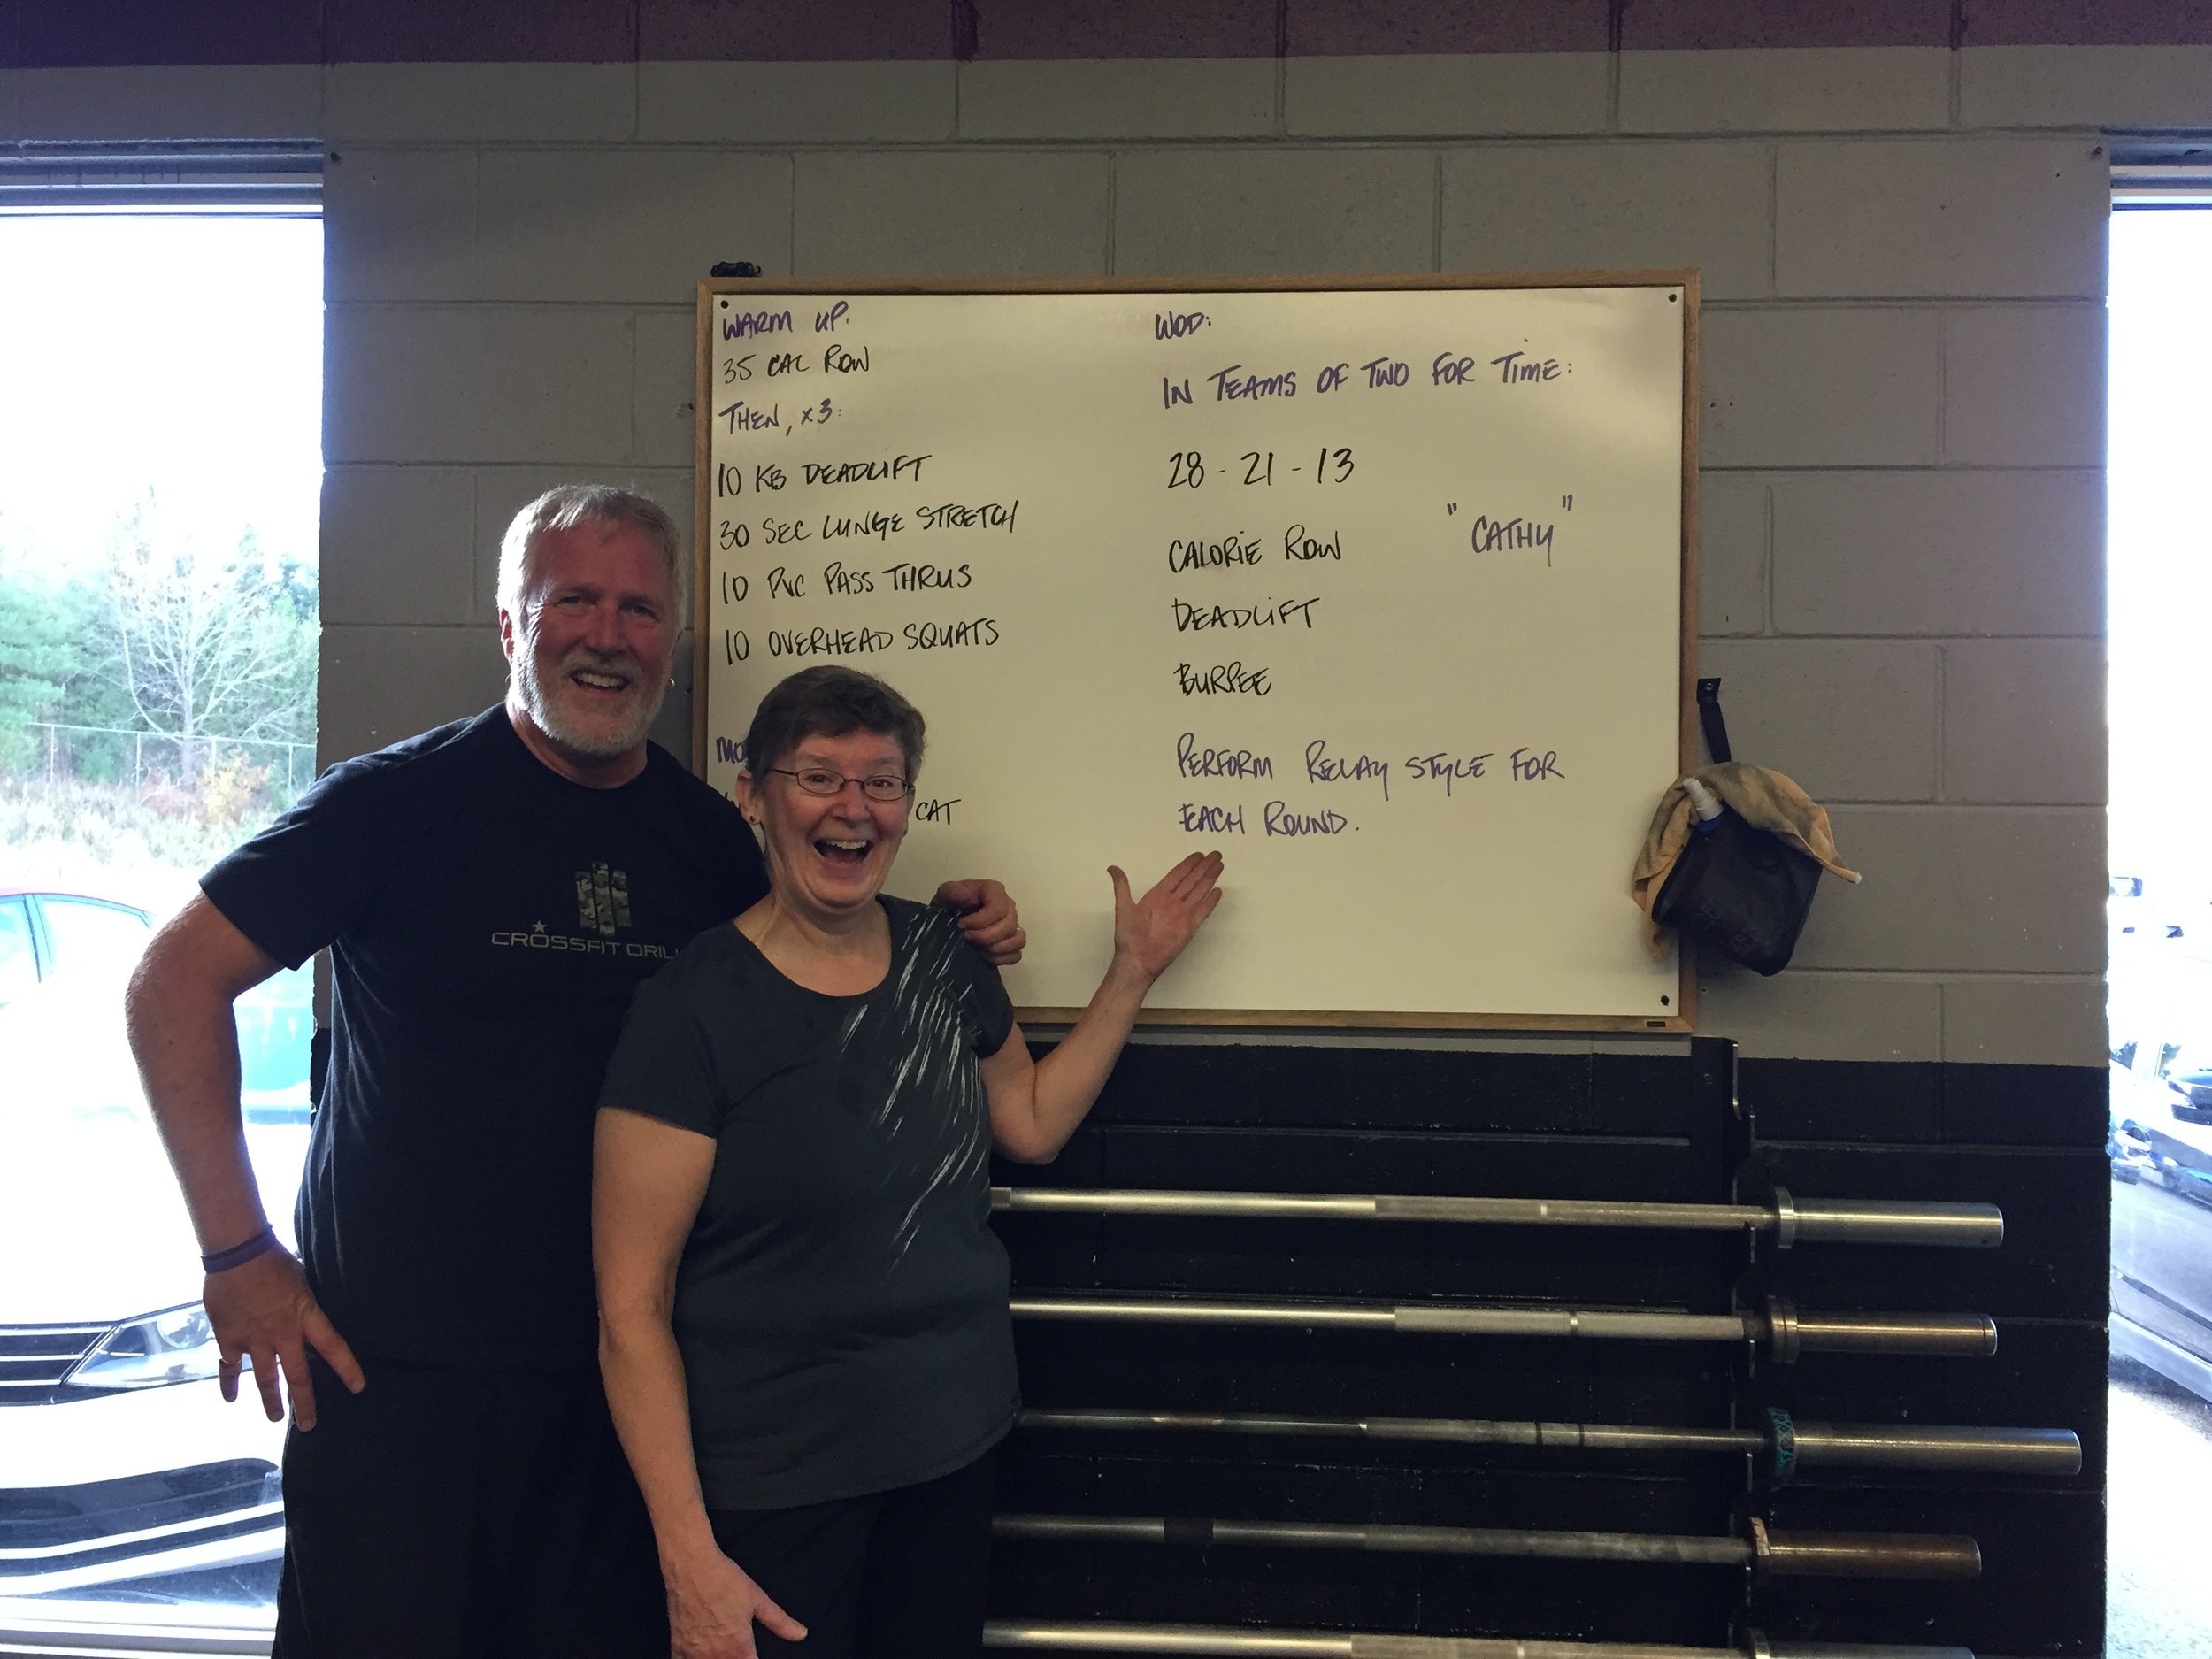 WARM UP.
35 CAL ROW
THEN, x3:
10 KB DEADLIFT
30 SEC LUNGE STRETCH
10 PVC PASS THRUS
10 OVERHEAD SQUATS
CAT
WOD:
IN TEAMS OF TWO FOR TIME:
28 - 21 - 13
"CATHY"
CALORIE ROW
DEADLIFT
BURPEE
PERFORM RELAY STYLE FOR
EACH ROUND.
CROSSFIT